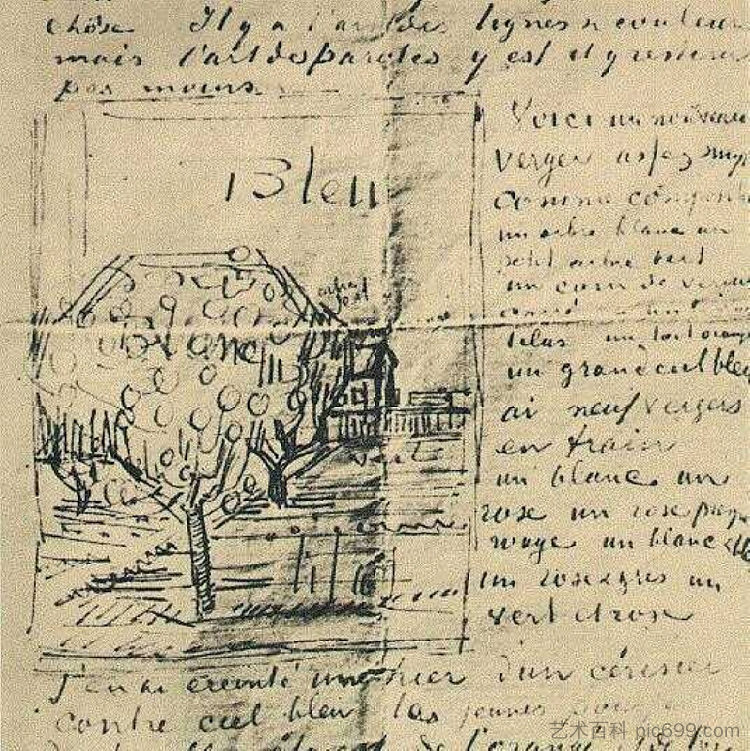 chose Il y a l'art des lignes & couleurs
mais l'art des paroles y est et y restera
pas moins.
Bleu
Blanc
verte
Voici un nouveau
verger assez simple
comme composition
un arbre blanc un
petit arbre vert
un coin de verdure
lilas un toit orangé
un grand ciel bleu
ai neuf vergers
en train
un blanc un
rose un rose presque
rouge un blanc &
un rose & gris un
vert et rose
J'en ai éreinté un hier d'un cerisier
contre ciel bleu les jeunes
de l'orangé
艺术百科 pic699.com